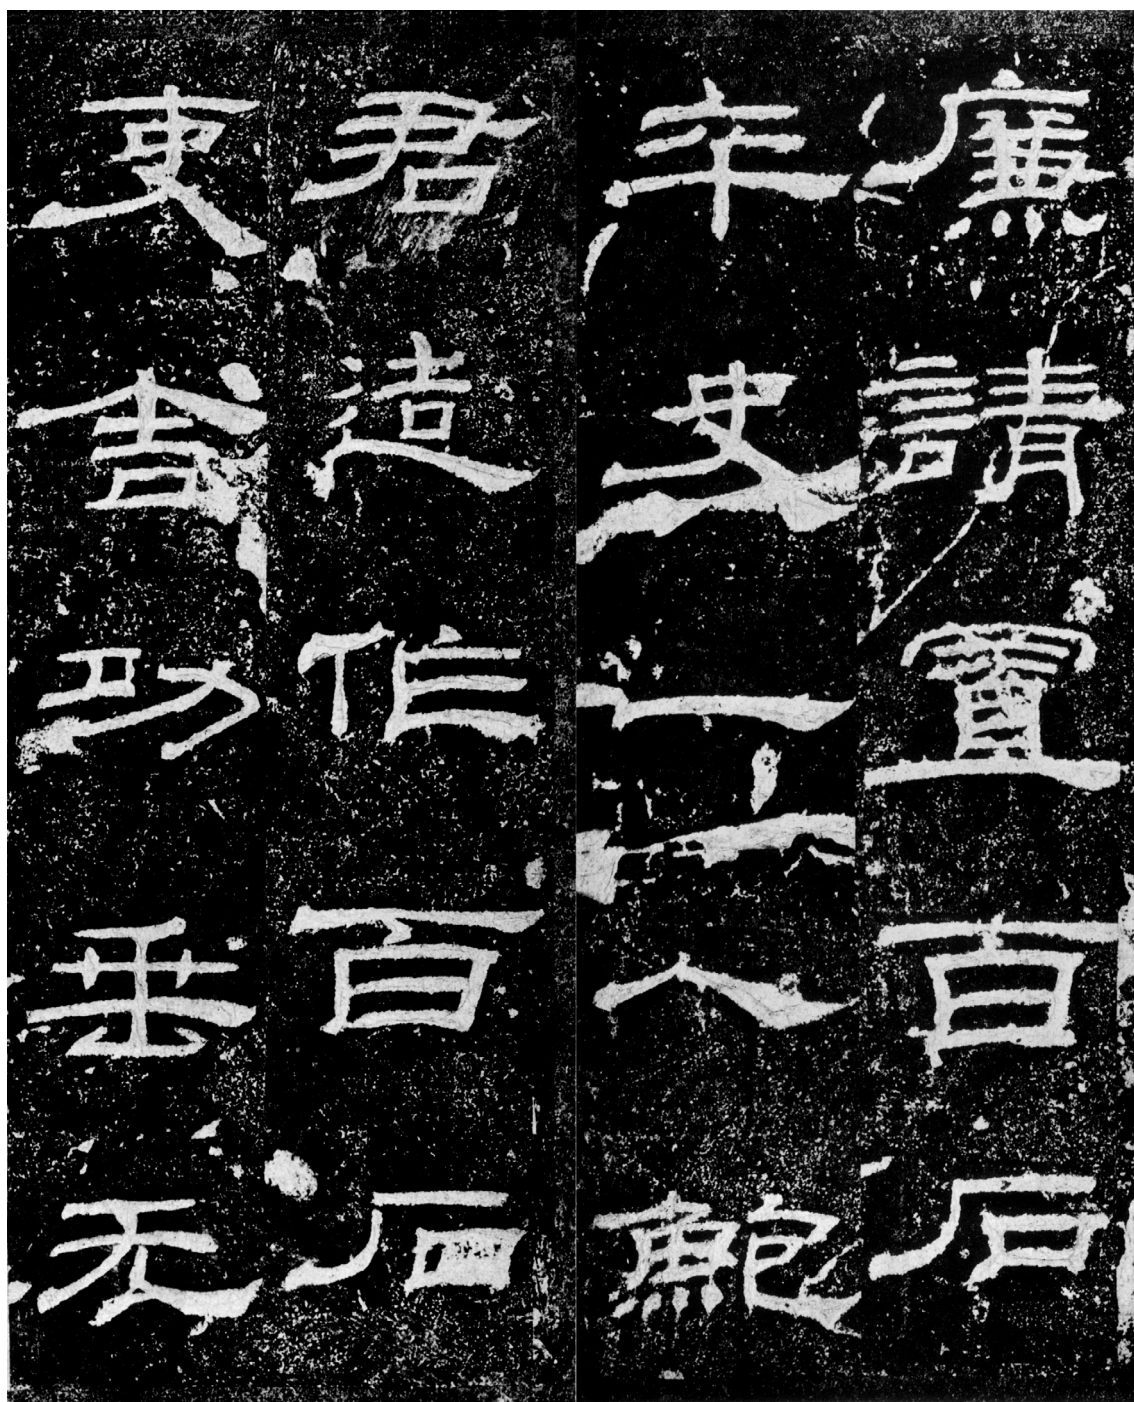 廉請置百石
卒史一人鮑
君造作百石
吏舍功垂无